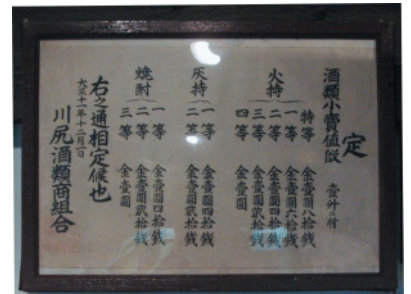 定
酒類小賣値段 壹升ニ付
火持
特等 金壹圓八拾銭
一等 金壹圓六拾銭
二等 金壹圓四拾銭
三等 金壹圓貳拾銭
四等 金壹圓
灰持
一等 金壹圓四拾銭
二等 金壹圓貳拾銭
焼酎
一等 金壹圓四拾銭
二等 金壹圓貳拾銭
三等 金壹圓
右之通相定候也
大正十一年十二月一日
川尻酒類商組合